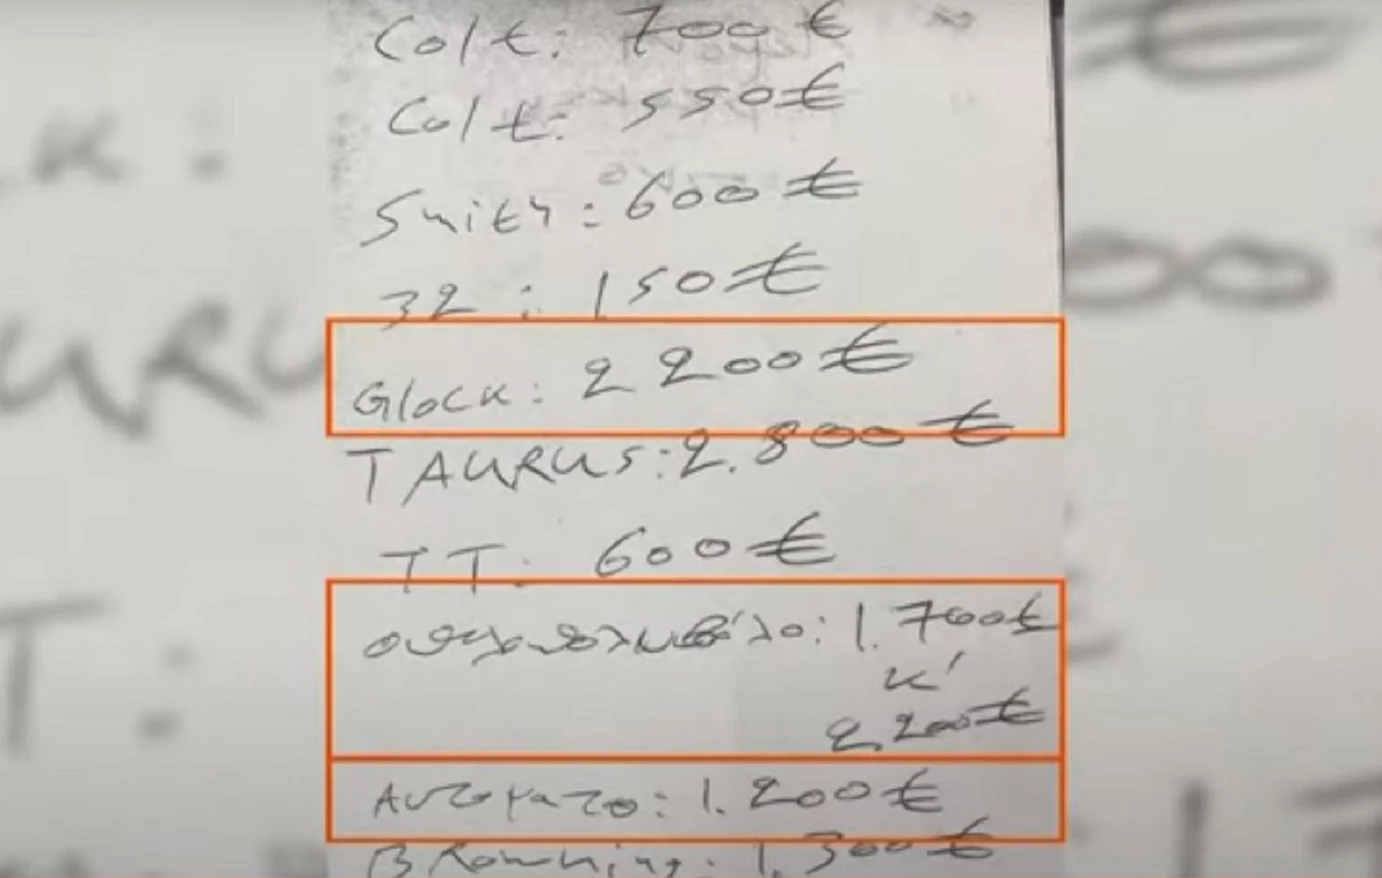 Colt: 700 €
Colt: 550€
Smith: 600 €
32 : 150€
Glock: 2 200€
TAURUS: 2.800€
TT: 600€
1.700€
κ'
2.200€
Αυτοματο: 1.200€
Browning: 1.300€